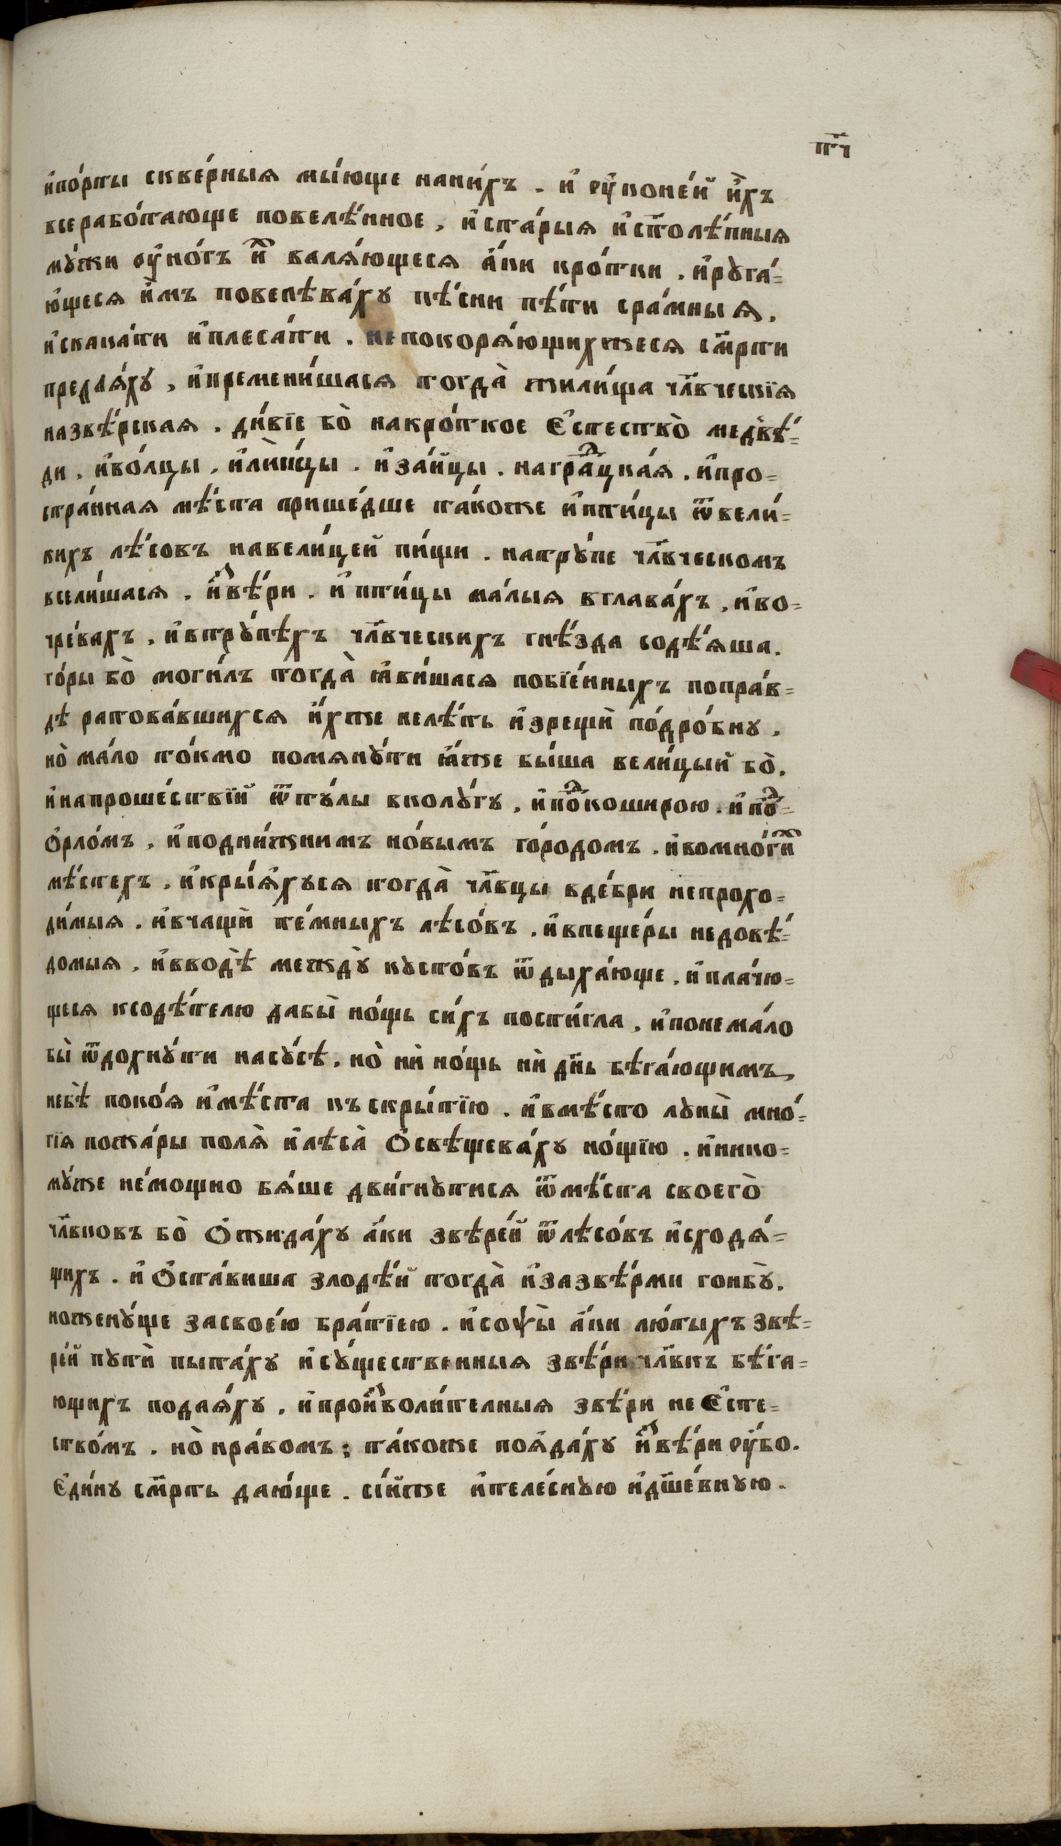 п҃г
и҆по́рты скве́рныя мы́юще нани́хъ . и҆ ᲂу҆коне́й и҆́хъ
все рабо́тающе повелѣ́нное , и҆ ста́рыя и҆ сто҃лѣ́пныя
му́жи ᲂу҆но́гъ и҆х валя́ющеся а҆́ки кро́тки . и҆руга́-
ю҆щеся и҆́мъ повелѣва́ху пѣ́сни пѣ́ти сра́мныя .
и҆скака́ти и҆плеса́ти . непокоря́ющихжеся см҃рти
предая́ху , и҆премени́шася тогда̀ жили́ща чл҃вческїя
назвѣ́рская . ди́вїе бо̀ накро́ткое є҆стество̀ медвѣ́-
ди , и҆во́лцы , и҆ли́сцы . и҆за́йцы . награ́дцкая . и҆про-
стра́нная мѣ́ста прише́дше та́коже и҆пти́цы ѿвели́-
кихъ лѣ́совъ навели́цей пи́щи . натру́пе чл҃вческомъ
всели́шася . и҆звѣ́ри . и҆ пти́цы ма́лыя вглава́хъ , и҆во-
чре́вахъ , и҆втру́пѣхъ чл҃вческихъ гнѣ́зда содѣ́яша .
го́ры бо̀ моги́лъ тогда̀ ꙗ҆ви́шася побїе́нныхъ попра́в-
дѣ ратова́вшихся и҆́хже нелѣ́ть и҆зрещѝ по́дробну ,
но̀ ма́ло то́кмо помяну́ти ꙗ҆́же бы́ша вели́цый бо̀ .
и҆напроше́ствїй ѿту́лы вколу́гу , и҆подкоширою . и҆под-
ѻ҆рло́мъ , и҆подни́жнимъ но́вымъ го́родомъ . и҆вомно́гих
мѣ́стехъ . и҆крыя́хуся тогда̀ чл҃вцы вде́бри непрохо-
ди́мыя . и҆вчащѝ те́мныхъ лѣсо́въ . и҆впеще́ры недовѣ́-
домыя , и҆вводѣ̀ между̀ кусто́въ ѿдыха́юще . и҆ плачю-
щеся ксодѣ́телю дабы̀ но́щь си́хъ пости́гла , и҆понема́ло
бы̀ ѿдохну́ти насу́сѣ . но̀ нѝ но́щь нѝ дн҃ь бѣга́ющимъ
небѣ̀ поко́я и҆мѣ́ста къ скры́тїю . и҆вмѣ́сто луны̀ мно́-
гїя пожа́ры поля̀ и҆лѣса̀ ѻ҆свѣщева́ху но́щїю . и҆нико-
му́же не́мощно бя́ше дви́гнутися ѿмѣ́ста своего̀
чл҃вковъ бо̀ ѻ҆жида́ху а҆́ки звѣре́й ѿлѣсо́въ и҆сходя́-
щихъ . и҆ ѻ҆ста́виша злодѣ́й тогда̀ и҆зазвѣ́рми гоньбу̀ .
но женуще засвое́ю бра́тїею . и҆сопсы̀ а҆́ки лю́тыхъ звѣ-
ре́й путѝ пыта́ху и҆су́щественныя звѣ́ри чл҃вкъ бѣга-
ющихъ подая́ху . и҆произволи́телныя звѣ́ри не є҆сте-
ство́мъ . но̀ нра́вомъ ; та́коже поя҆да́ху и҆звѣ́ри ᲂу҆́бо .
є҆ди́ну см҃рть даю́ще . сі́иже и҆теле́сную и҆дш҃е́вную .